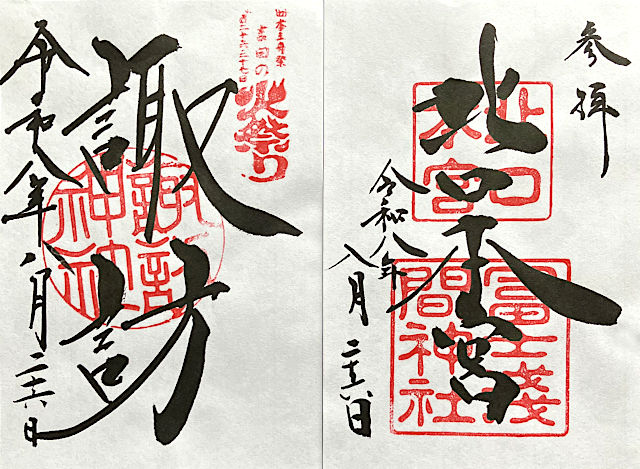 参拝
北口本宮
北口
本宮
冨士浅
間神社
令和八年
八月二十六日
日本三奇祭
吉田の
火祭り
諏訪
諏訪
神社
令和八年八月二十六日